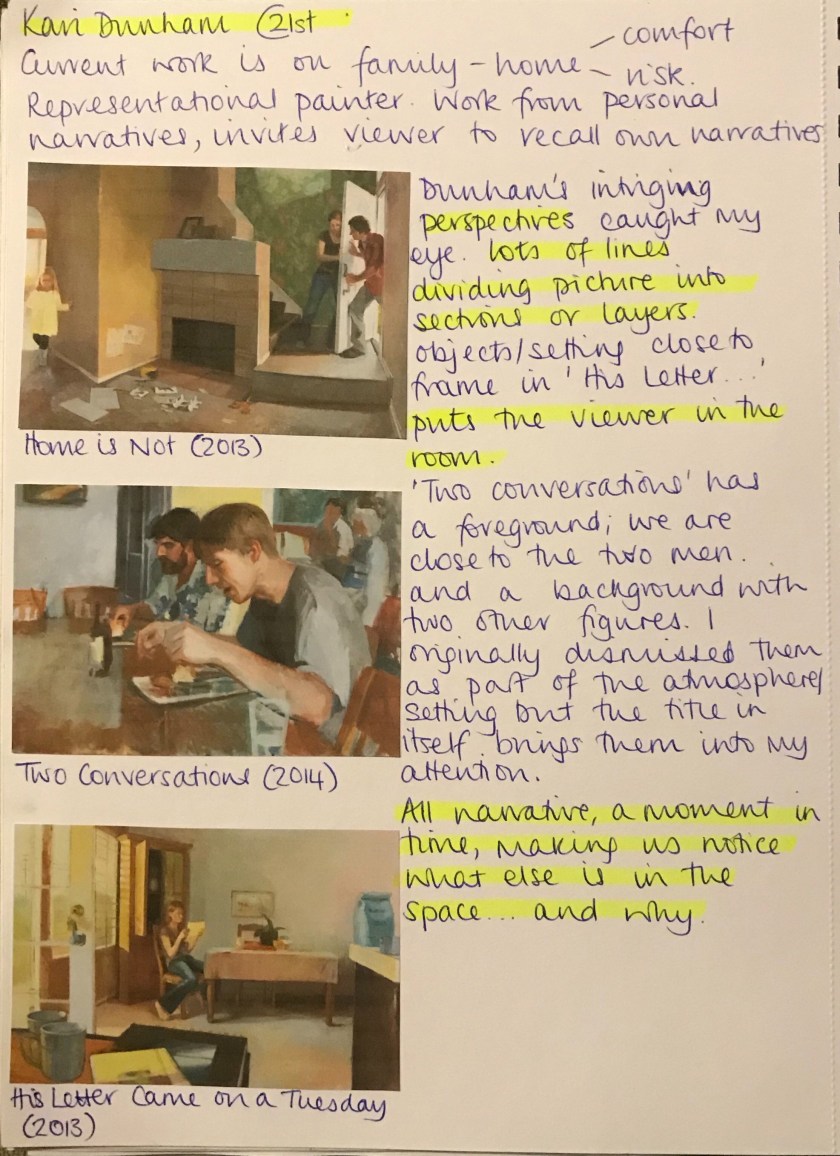 Kari Dunham (21st
Current work is on family - home - comfort
- risk.
Representational painter. Work from personal
narratives, invites viewer to recall own narratives
Dunham's intriging
perspectives caught my
eye. lots of lines
dividing picture into
sections or layers.
objects/setting close to
frame in 'His Letter...'
puts the viewer in the
room.
Home is Not (2013)
'Two conversations' has
a foreground; we are
close to the two men.
and a background with
two other figures. I
originally dismissed them
as part of the atmosphere/
setting but the title in
itself brings them into my
attention.
Two Conversations (2014)
All narrative, a moment in
time, making us notice
what else is in the
space... and why.
His Letter Came on a Tuesday
(2013)